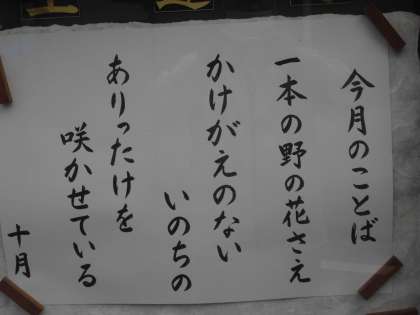 今月のことば
一本の野の花さえ
かけがえのない
いのちの
ありったけを
咲かせている
十月